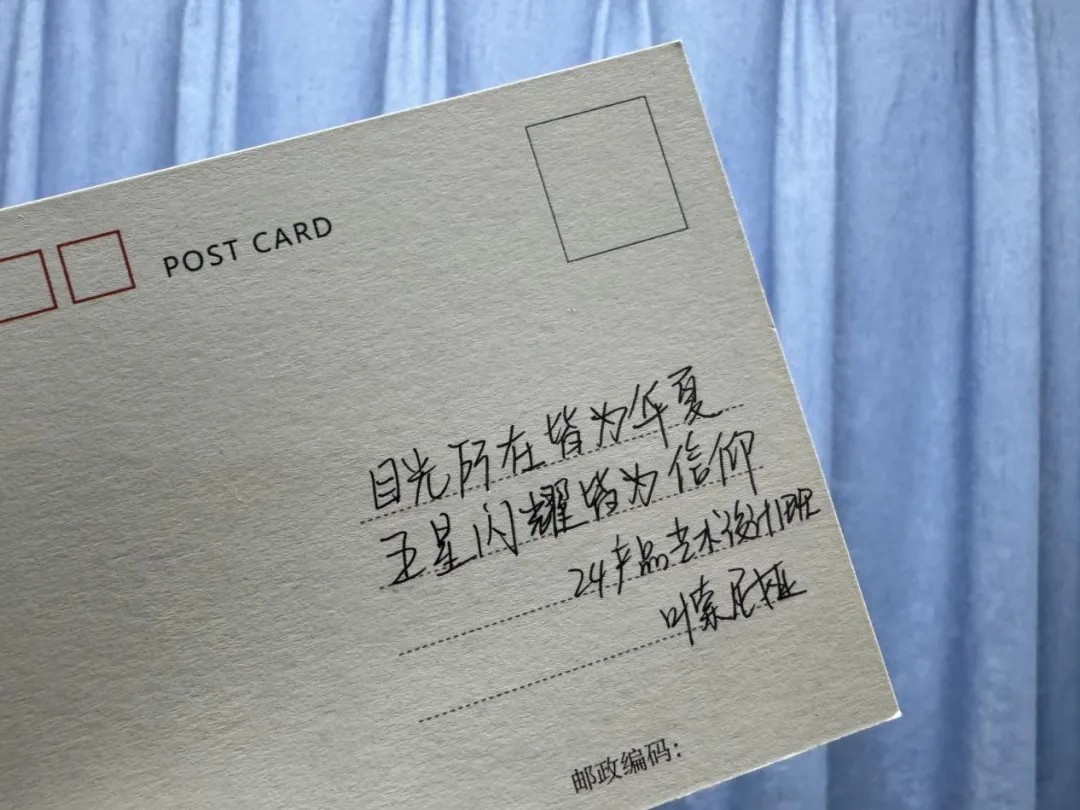 POST CARD
目光所在皆为华夏
五星闪耀皆为信仰
24产品艺术设计1班
叶索尼娅
邮政编码: